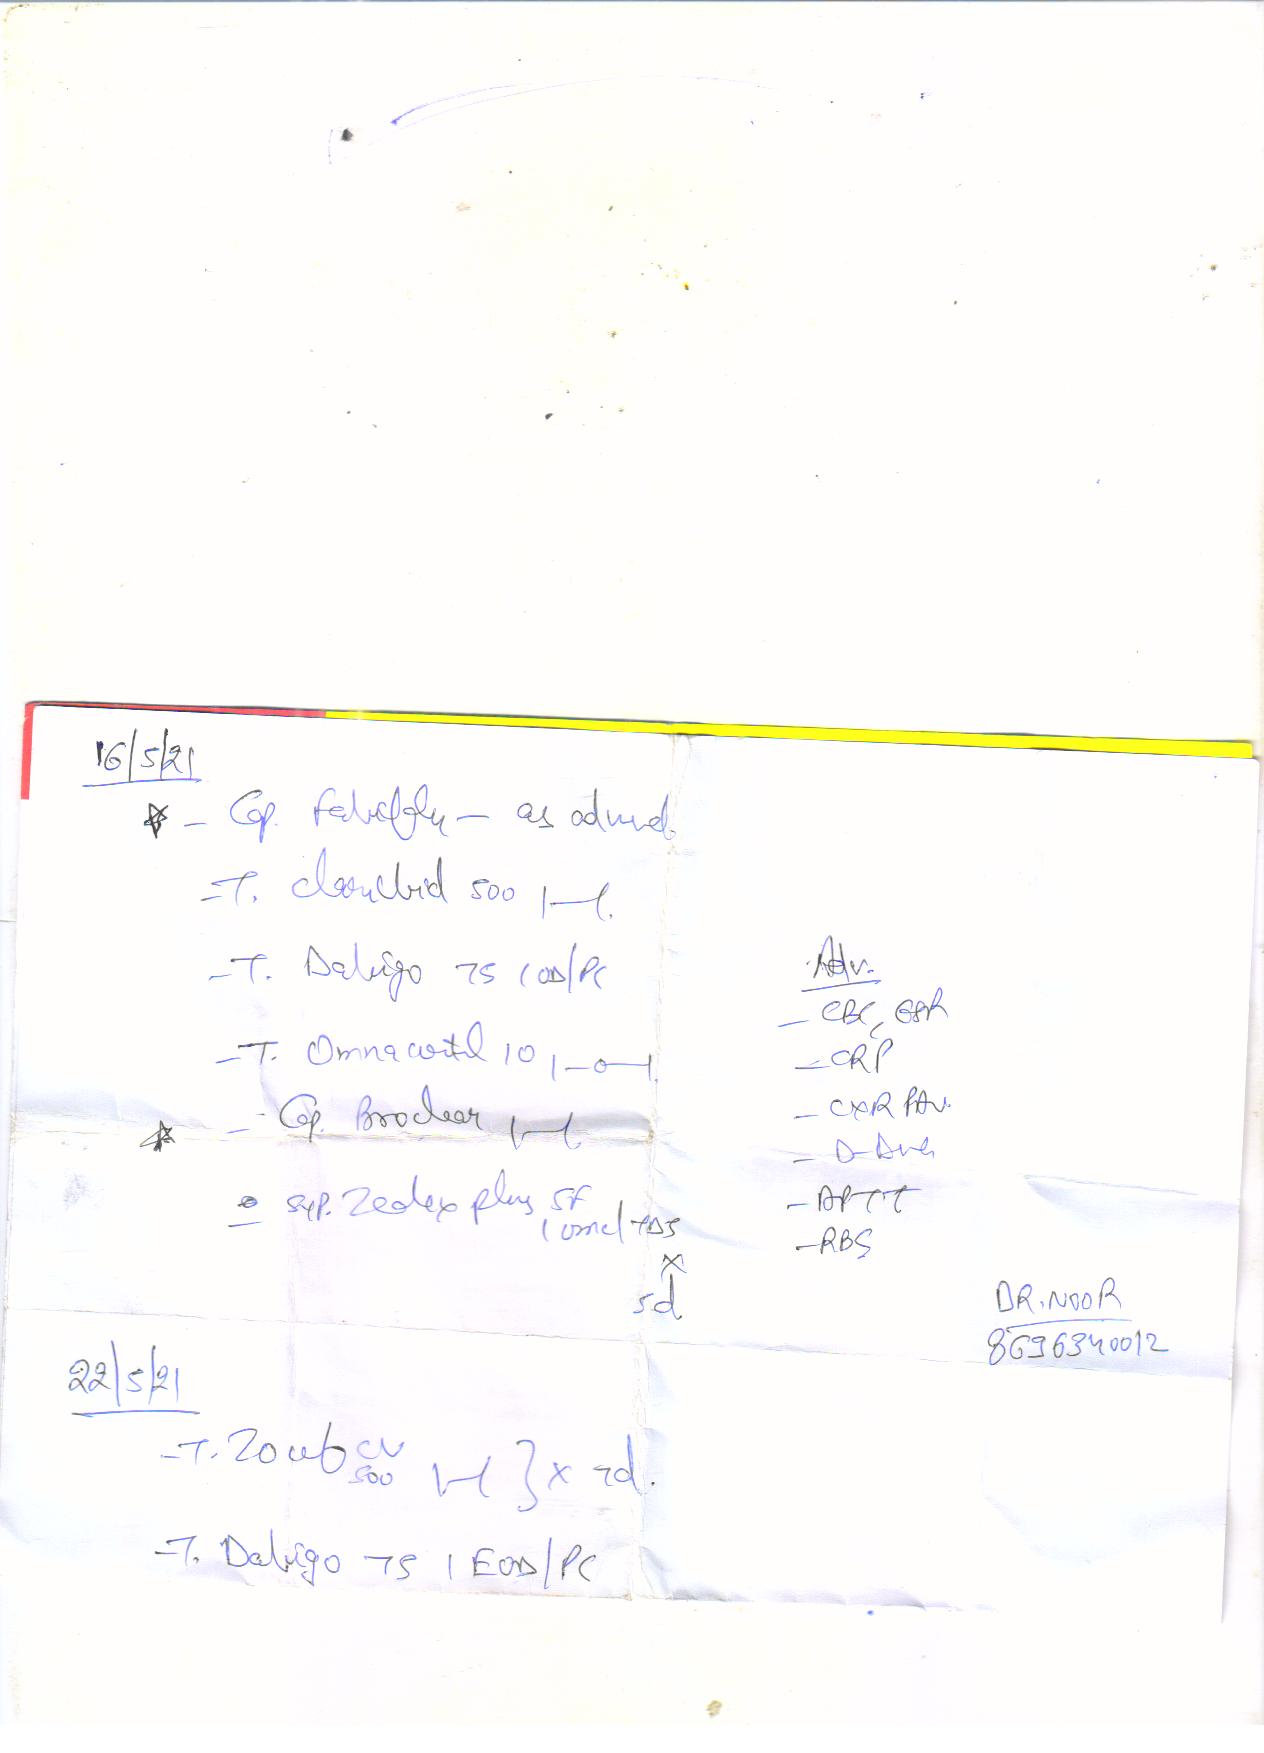 16/5/21
- Cap. Fabiflu - as advised
- T. Clarithid 500 1-1
- T. Dabigo 75 1 OD/PC
- T. Omnacortil 10 1-0-1
- Cap. Broclear 1-1
- Syp. Zedex plus SF
10ml TDS
x
5d
Adv.
- CBC, ESR
- CRP
- CXR PAv.
- D-Dimer
- APTT
- RBS
DR. NOOR
8696340012
22/5/21
- T. Zocef CV 500 1-1 } x 7d.
- T. Dabigo 75 1 EOD/PC